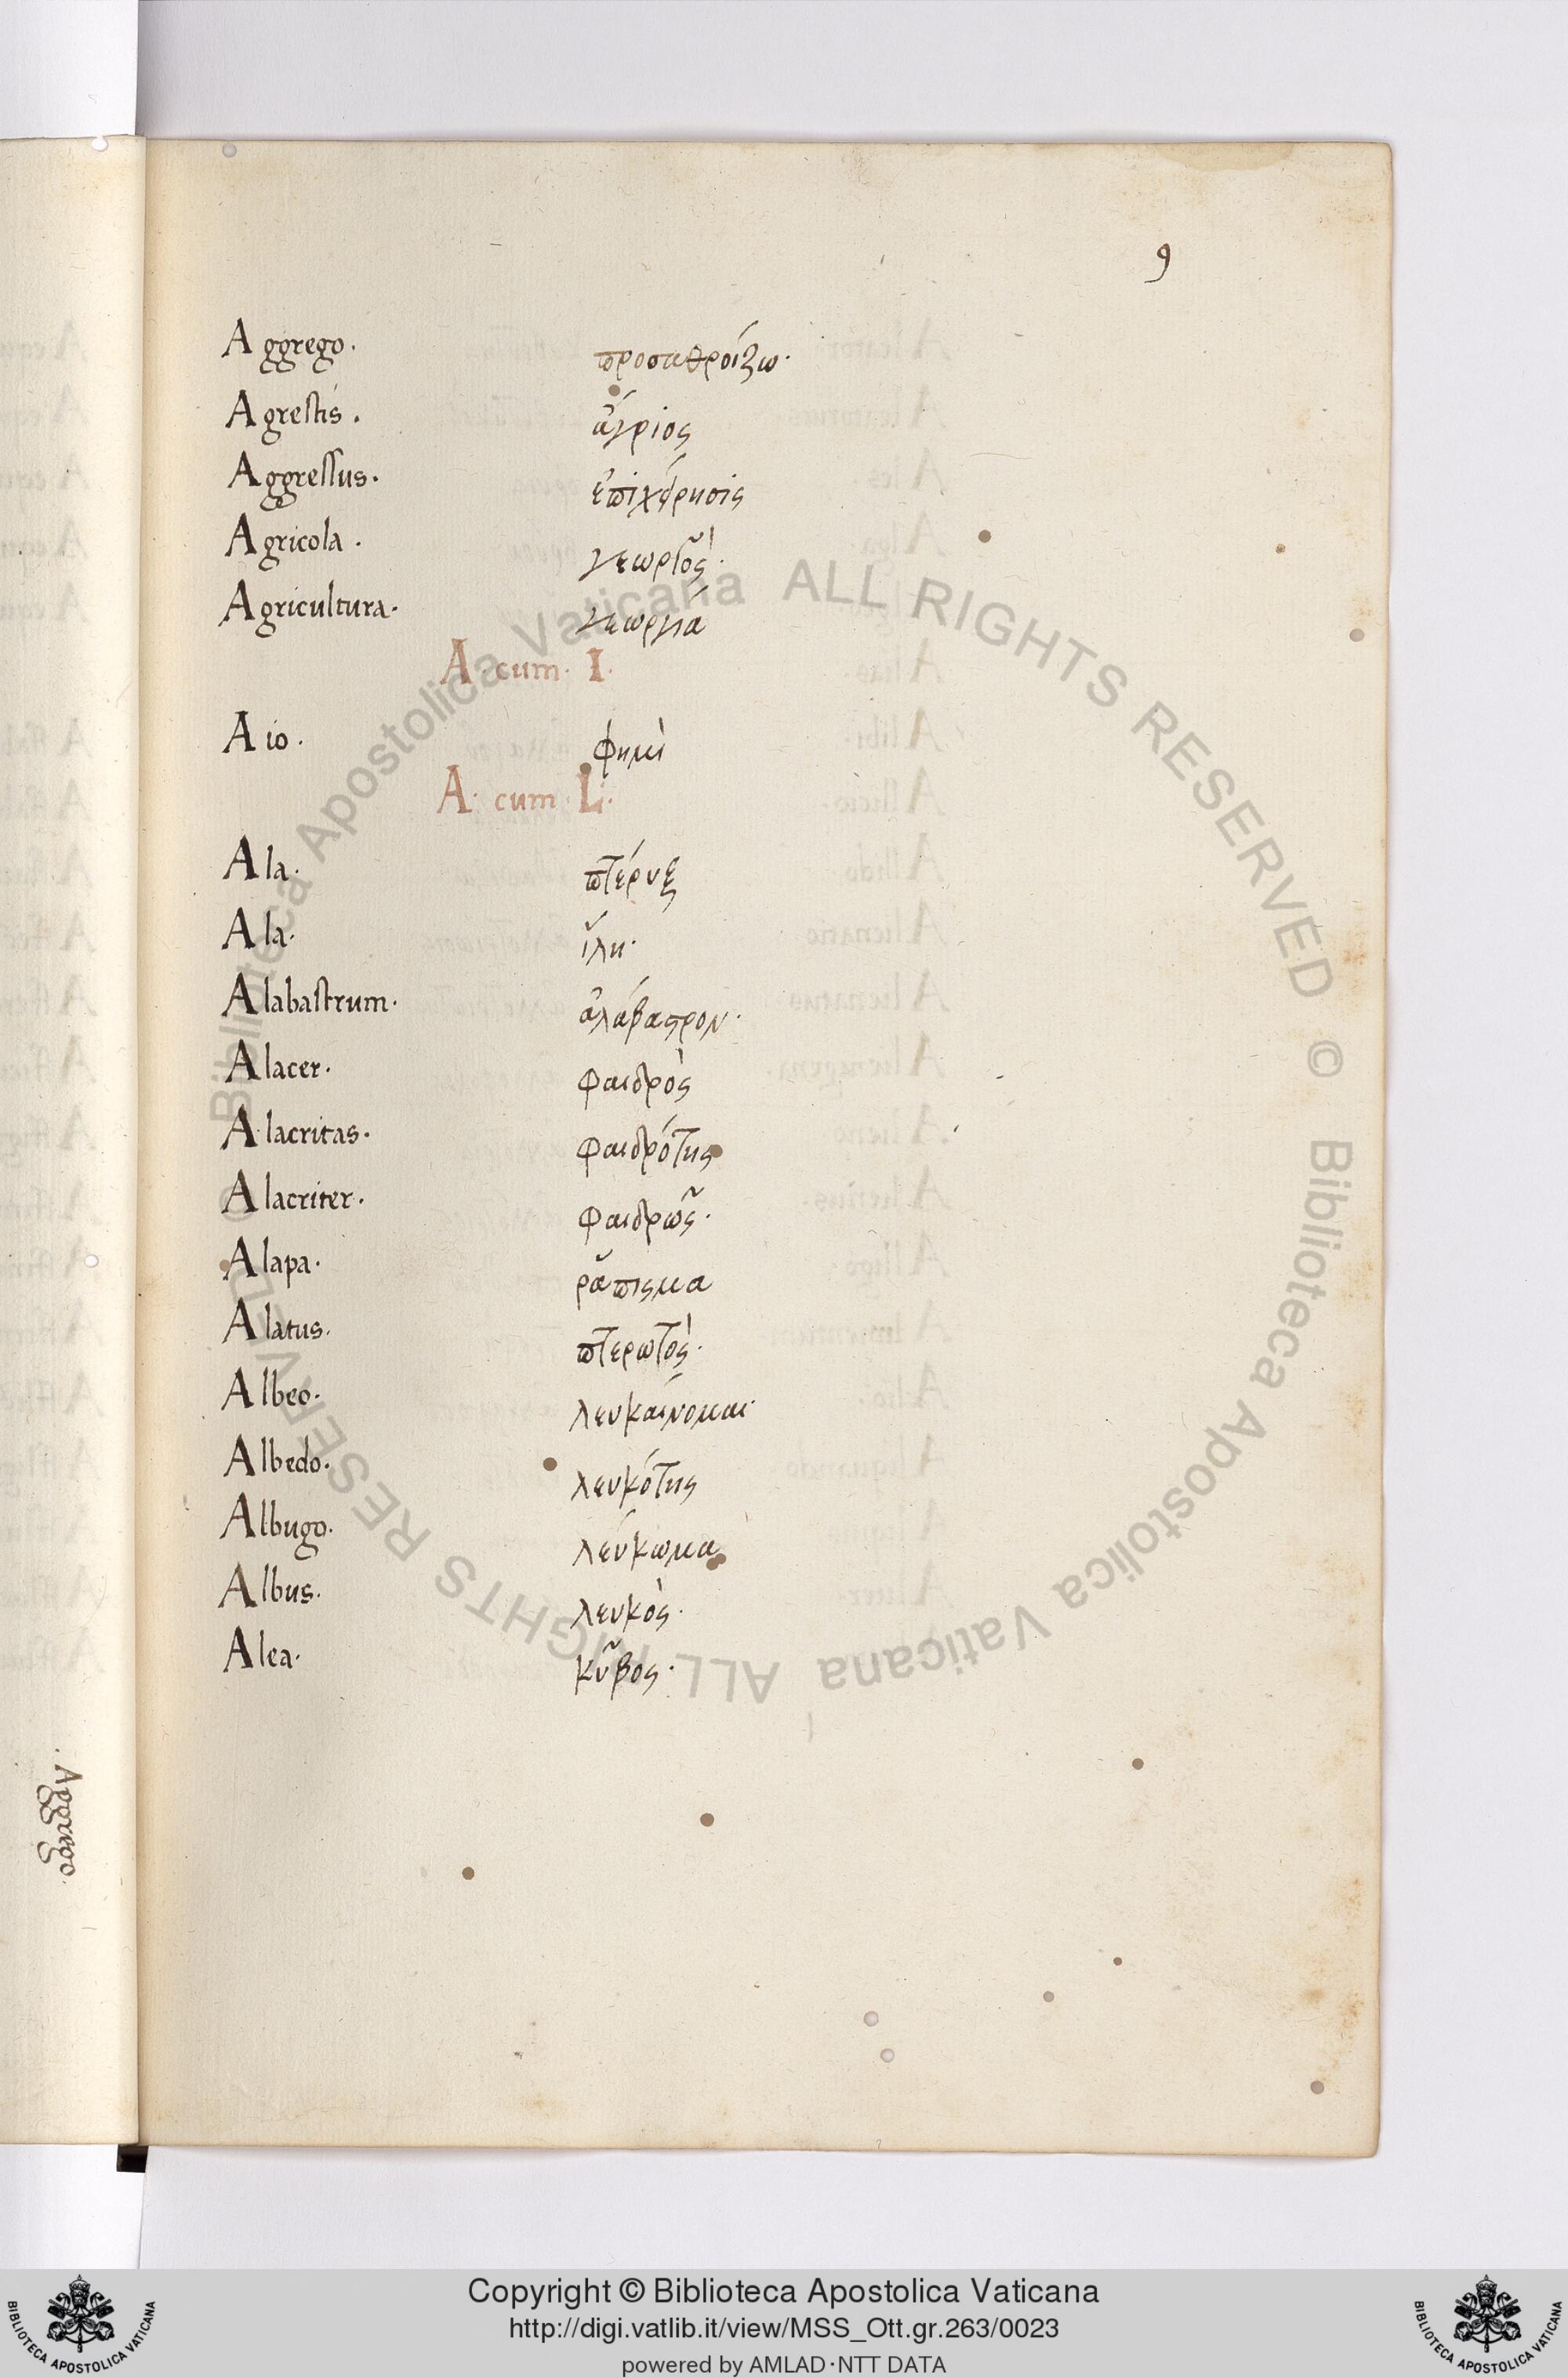 9
Aggrego. προσαθροίζω.
Agrestis. ἄγριος
Aggressus. ἐπιχείρησις
Agricola. γεωργὸς.
Agricultura. γεωργία
A. cum. I.
Aio. φημὶ
A. cum. L.
Ala. πτέρυξ
Ala. ἴλη.
Alabastrum. ἀλάβαστρον.
Alacer. φαιδρὸς
Alacritas. φαιδρότης
Alacriter. φαιδρῶς.
Alapa. ῥάπισμα
Alatus. πτερωτὸς.
Albeo. λευκαίνομαι.
Albedo. λευκότης
Albugo. λεύκωμα
Albus. λευκὸς.
Alea. κῦβος.
Aggrego.
© Biblioteca Apostolica Vaticana ALL RIGHTS RESERVED © Biblioteca Apostolica Vaticana ALL RIGHTS RESERVED
Copyright © Biblioteca Apostolica Vaticana
http://digi.vatlib.it/view/MSS_Ott.gr.263/0023
powered by AMLAD·NTT DATA
BIBLIOTECA APOSTOLICA VATICANA
BIBLIOTECA APOSTOLICA VATICANA